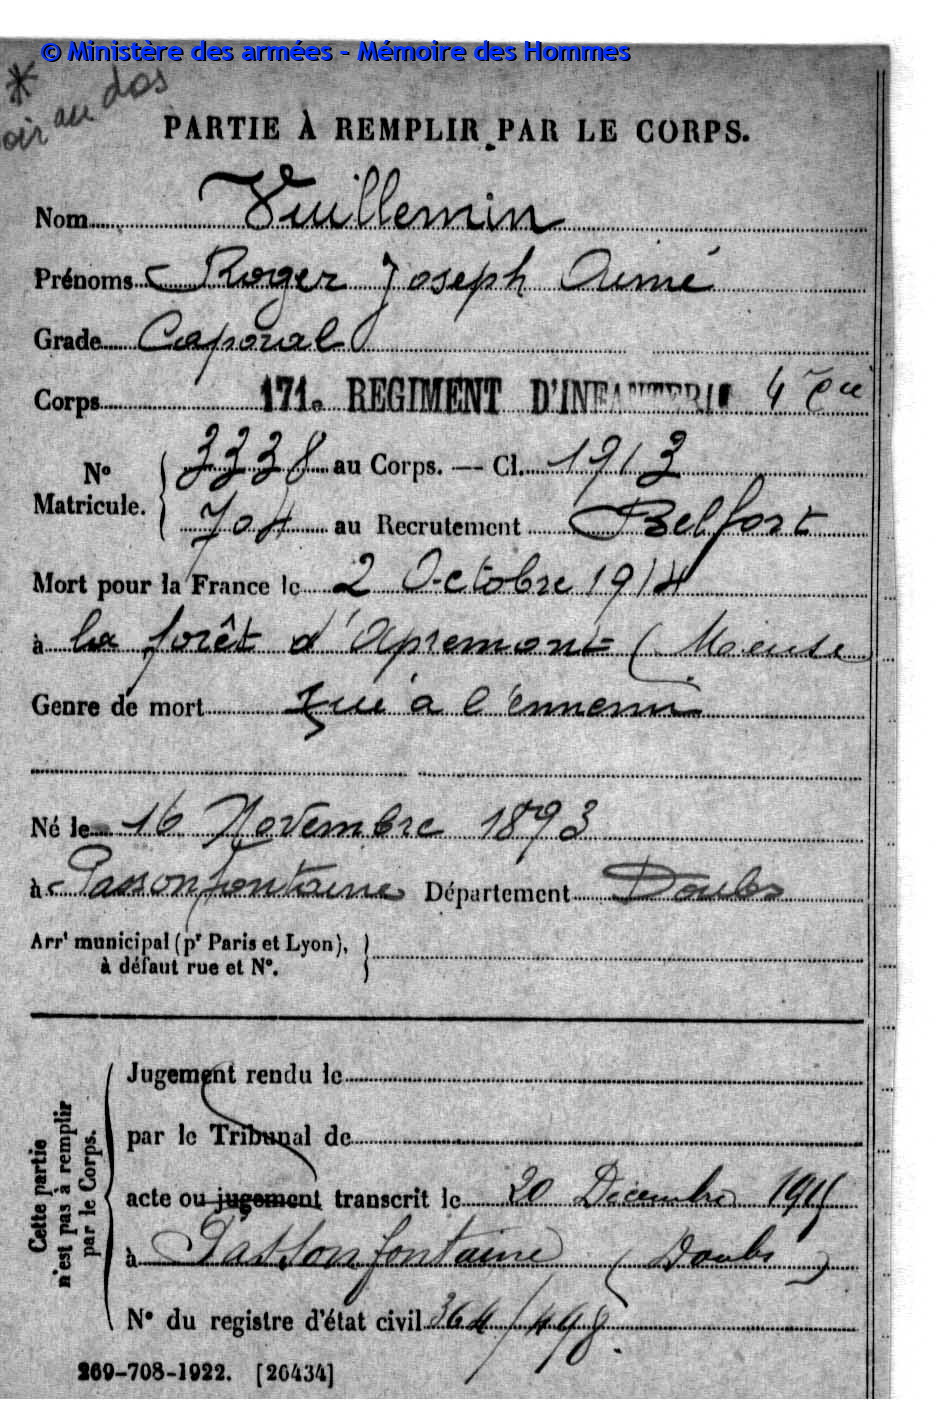 © Ministère des armées - Mémoire des Hommes
* voir au dos
PARTIE À REMPLIR PAR LE CORPS.
Nom Vuillemin
Prénoms Roger Joseph Aimé
Grade Caporal
Corps 171e REGIMENT D'INFANTERIE 4 Cie
N° Matricule. 3338 au Corps. — Cl. 1913
704 au Recrutement Belfort
Mort pour la France le 2 Octobre 1914
à la forêt d'Apremont (Meuse
Genre de mort Tué à l'ennemi
Né le 16 Novembre 1893
à Passonfontaine Département Doubs
Arrt municipal (pr Paris et Lyon),
à défaut rue et N°.
Cette partie n'est pas à remplir par le Corps.
Jugement rendu le
par le Tribunal de
acte ou jugement transcrit le 20 Décembre 1915
à Passonfontaine (Doubs)
N° du registre d'état civil 364/498.
269-708-1922. [26434]